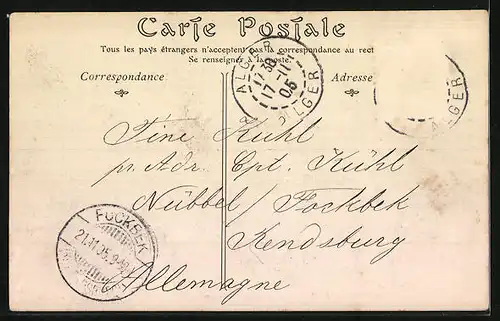 Carte Postale
Tous les pays étrangers n'acceptent pas la correspondance au recto
Se renseigner à la poste.
Correspondance
Adresse
ALGER
17 30
17-11
05
ALGER
ALGER
Tine Kühl
pr. Adr. Cpt. Kühl
Nübbel / Fockbek
Rendsburg
Allemagne
FOCKBEK
21.11.05.